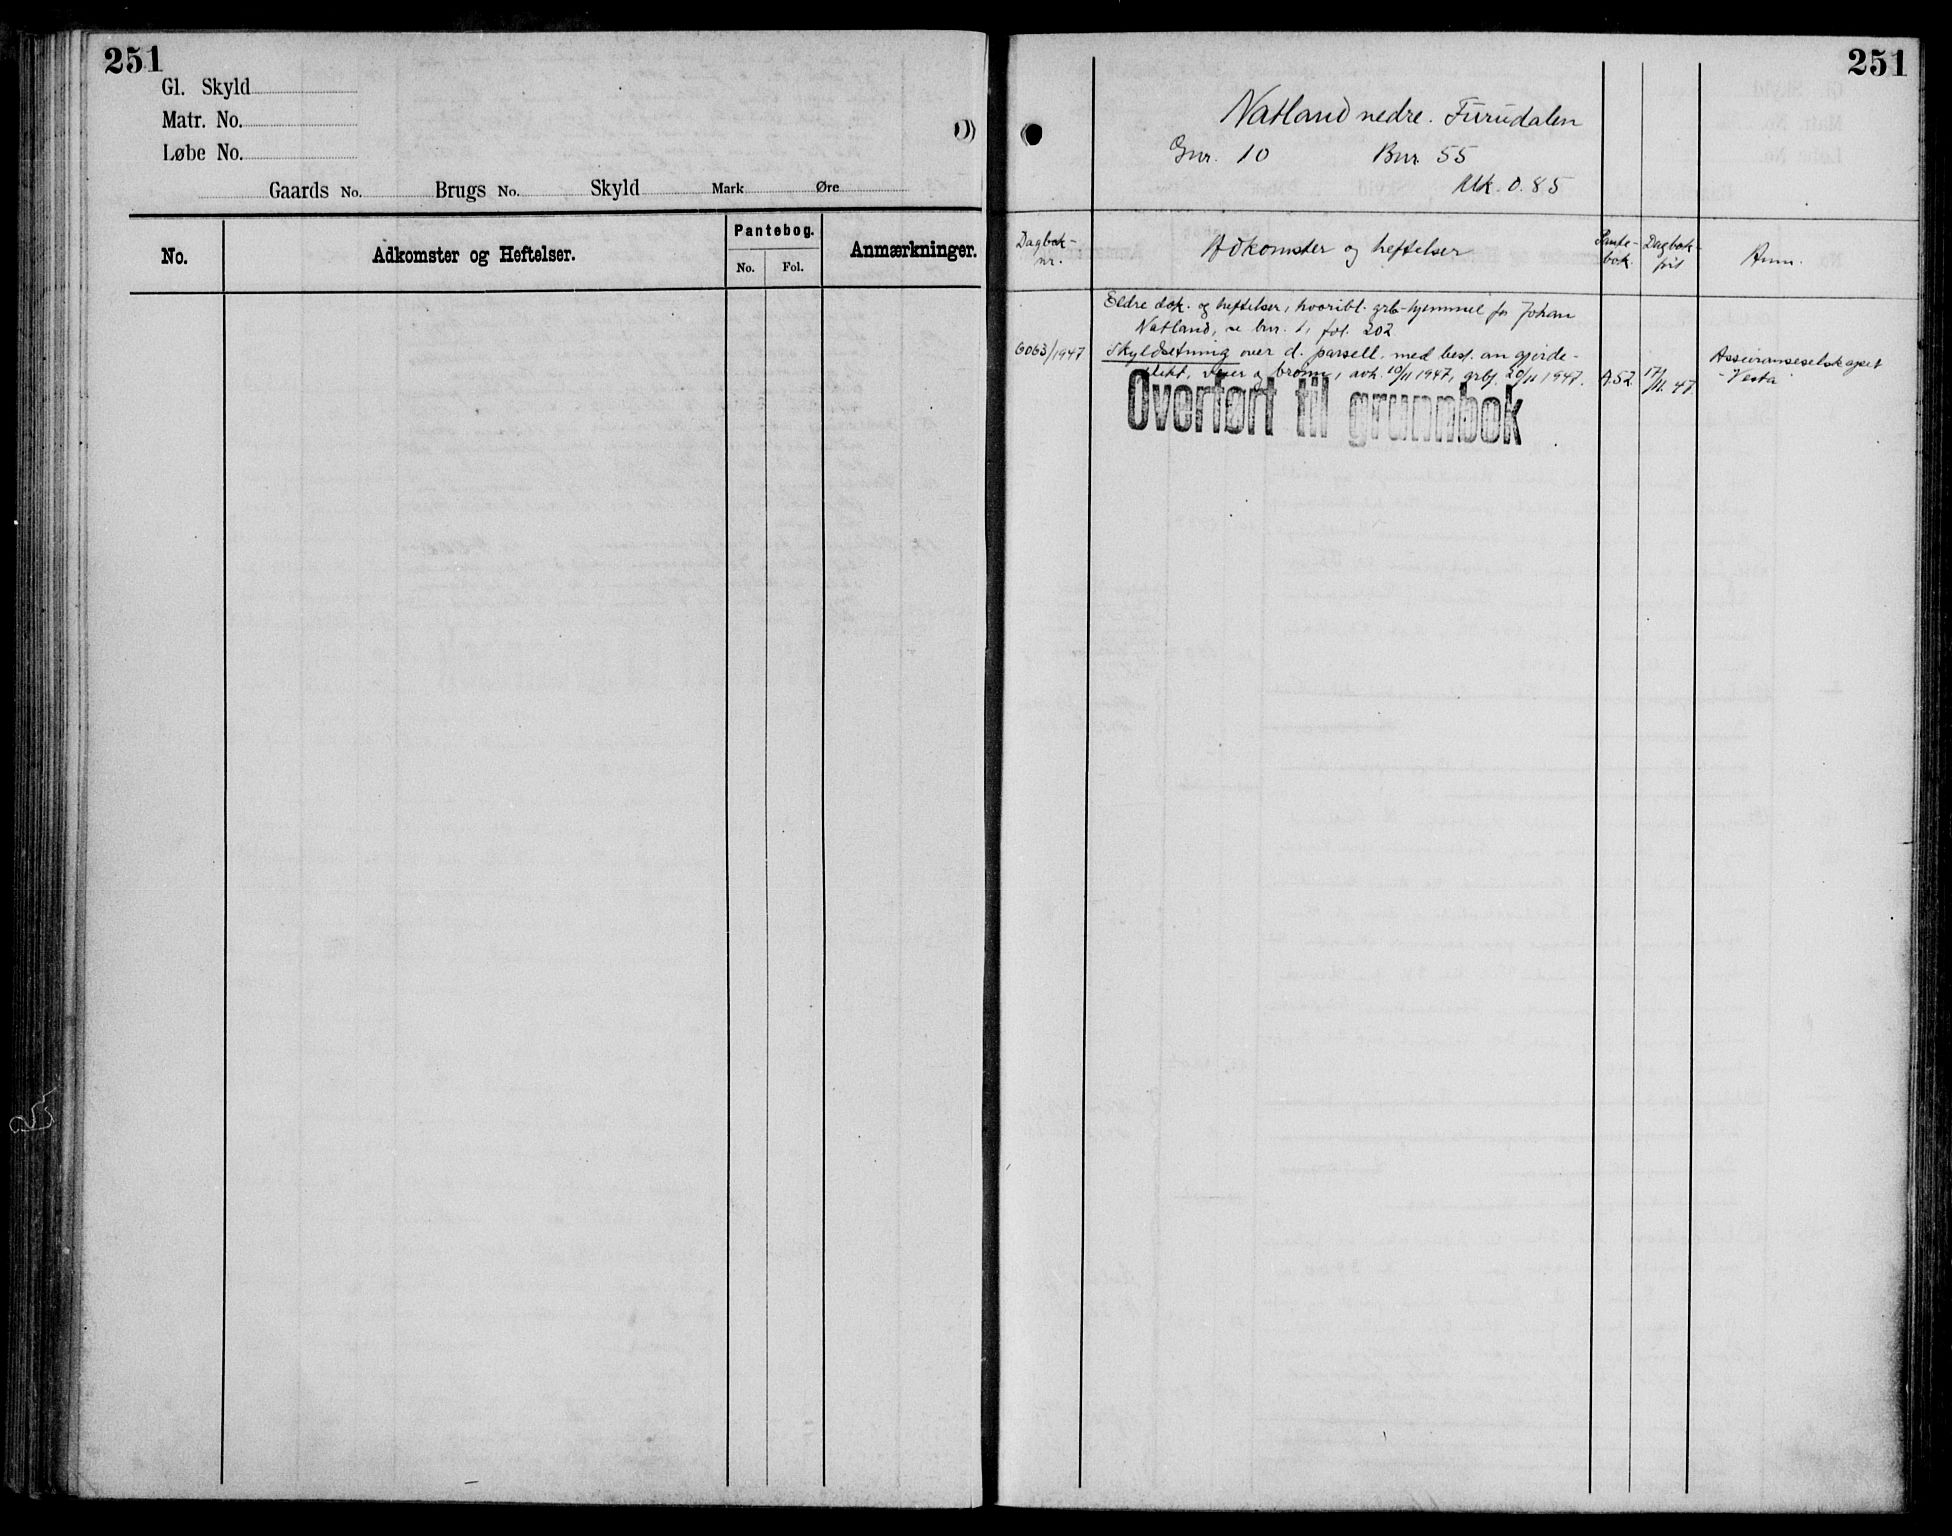 251
Gl. Skyld
Matr. No.
Løbe No.
Gaards No. Brugs No. Skyld Mark Øre
No. Adkomster og Heftelser. Pantebog. Anmærkninger.
No. Fol.
251
Natland nedre. Furudalen
Gnr. 10 Bnr. 55
Mk. 0.85
Dagbok-nr. Adkomster og heftelser Pante-bok. Dagbok- Anm.
Eldre dok. og heftelser, hvoribl. grb-hjemmel for Johan
Natland, se bnr. 1, fol. 202
6063/1947 Skyldsetning over d. parsell. med best. om gjerde-
plikt, veier og brønn, avh. 10/11 1947, grbf. 20/11 1947. A.52 17/11.47 Assuranseselskapet
Vesta
Overført til grunnbok